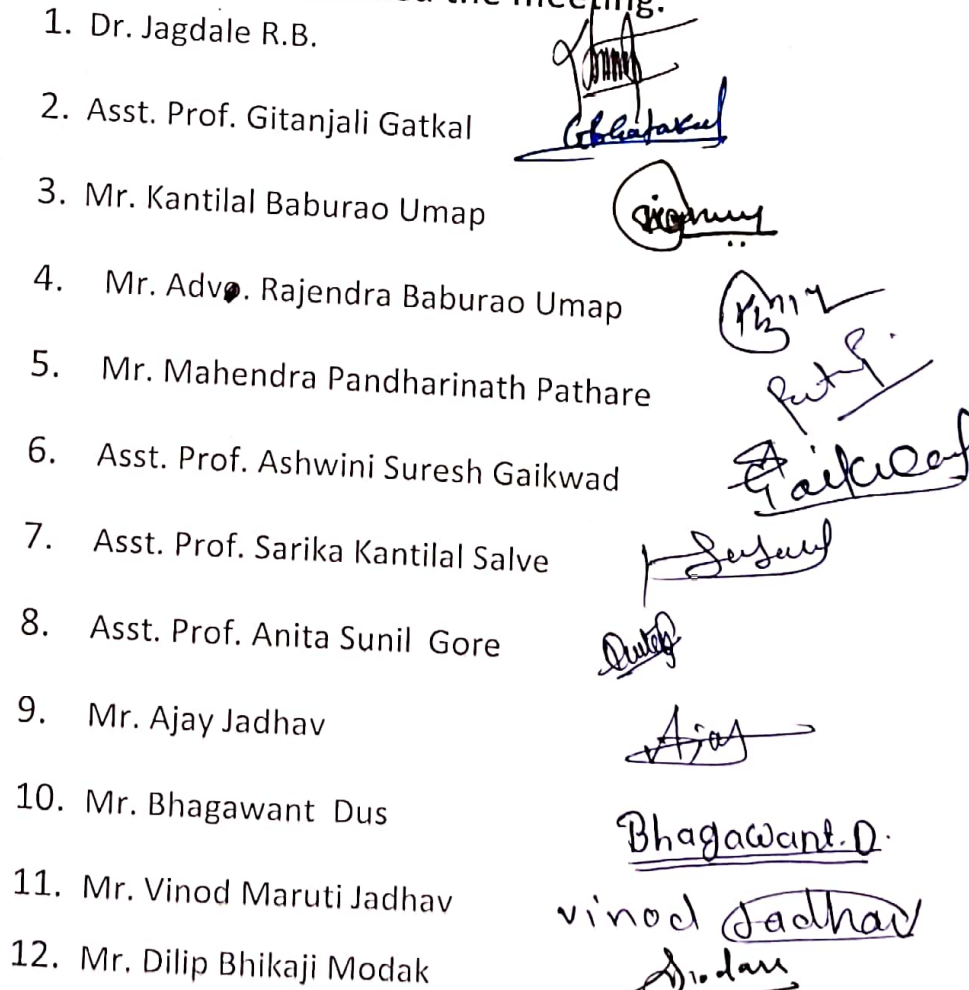 the meeting.
1. Dr. Jagdale R.B.
2. Asst. Prof. Gitanjali Gatkal
3. Mr. Kantilal Baburao Umap
4. Mr. Adv. Rajendra Baburao Umap
5. Mr. Mahendra Pandharinath Pathare
6. Asst. Prof. Ashwini Suresh Gaikwad Gaikwad
7. Asst. Prof. Sarika Kantilal Salve
8. Asst. Prof. Anita Sunil Gore
9. Mr. Ajay Jadhav Ajay
10. Mr. Bhagawant Dus Bhagawant.D.
11. Mr. Vinod Maruti Jadhav vinod Jadhav
12. Mr. Dilip Bhikaji Modak